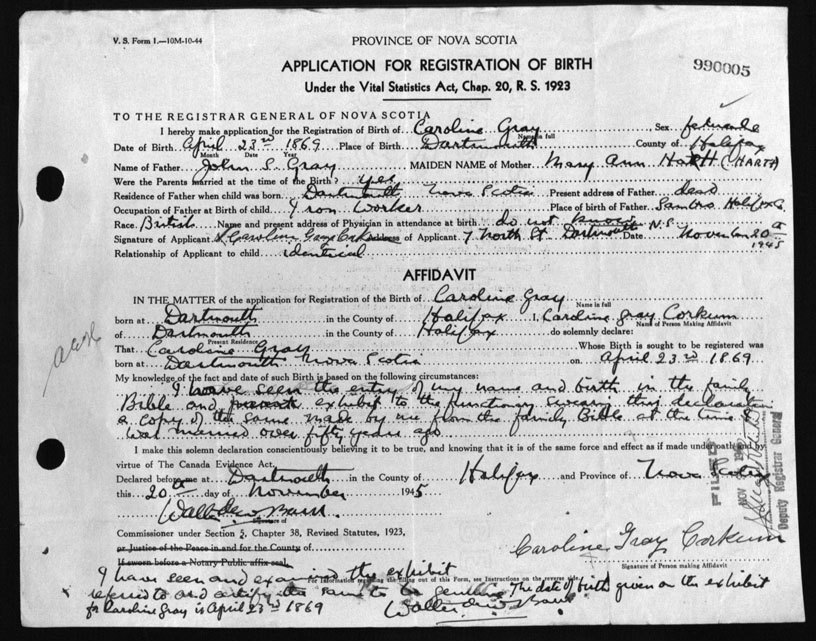 V. S. Form 1.—10M-10-44
PROVINCE OF NOVA SCOTIA
990005
APPLICATION FOR REGISTRATION OF BIRTH
Under the Vital Statistics Act, Chap. 20, R. S. 1923
TO THE REGISTRAR GENERAL OF NOVA SCOTIA
I hereby make application for the Registration of Birth of Caroline Gray Sex female
Name in full
Date of Birth April 23rd 1869 Place of Birth Dartmouth County of Halifax
Month Date Year
Name of Father John S. Gray MAIDEN NAME of Mother Mary Ann Hartt (HARTT)
Were the Parents married at the time of the Birth? yes
Residence of Father when child was born Dartmouth Nova Scotia Present address of Father dead
Occupation of Father at Birth of child Iron Worker Place of birth of Father Sambro Halifax Co
Race British Name and present address of Physician in attendance at birth do not know
Signature of Applicant Caroline Gray Corkum address of Applicant 7 North St. Dartmouth N.S. Date November 20th 1945
Relationship of Applicant to child identical
AFFIDAVIT
IN THE MATTER of the application for Registration of the Birth of Caroline Gray
Name in full
born at Dartmouth in the County of Halifax I, Caroline Gray Corkum
Name of Person Making Affidavit
of Dartmouth in the County of Halifax do solemnly declare:
Present Residence
That Caroline Gray Whose Birth is sought to be registered was
born at Dartmouth Nova Scotia on April 23rd 1869
My knowledge of the fact and date of such Birth is based on the following circumstances:
I have seen the entry of my name and birth in the family
Bible and exhibit to the functionary swearing this declaration
a copy of the same made by me from the family Bible at the time I
was married over fifty years ago
I make this solemn declaration conscientiously believing it to be true, and knowing that it is of the same force and effect as if made under oath and by
virtue of The Canada Evidence Act.
Declared before me at Dartmouth in the County of Halifax and Province of Nova Scotia
this 20th day of November 1945
FILED
NOV
Deputy Registrar General
Signature of
Commissioner under Section 2, Chapter 38, Revised Statutes, 1923,
or Justice of the Peace in and for the County of
Caroline Gray Corkum
Signature of Person making Affidavit
If sworn before a Notary Public affix seal.
For information regarding the filling out of this Form, see Instructions on the reverse side
I have seen and examined the exhibit
referred to and certify the same to be genuine The date of birth given on the exhibit
for Caroline Gray is April 23rd 1869